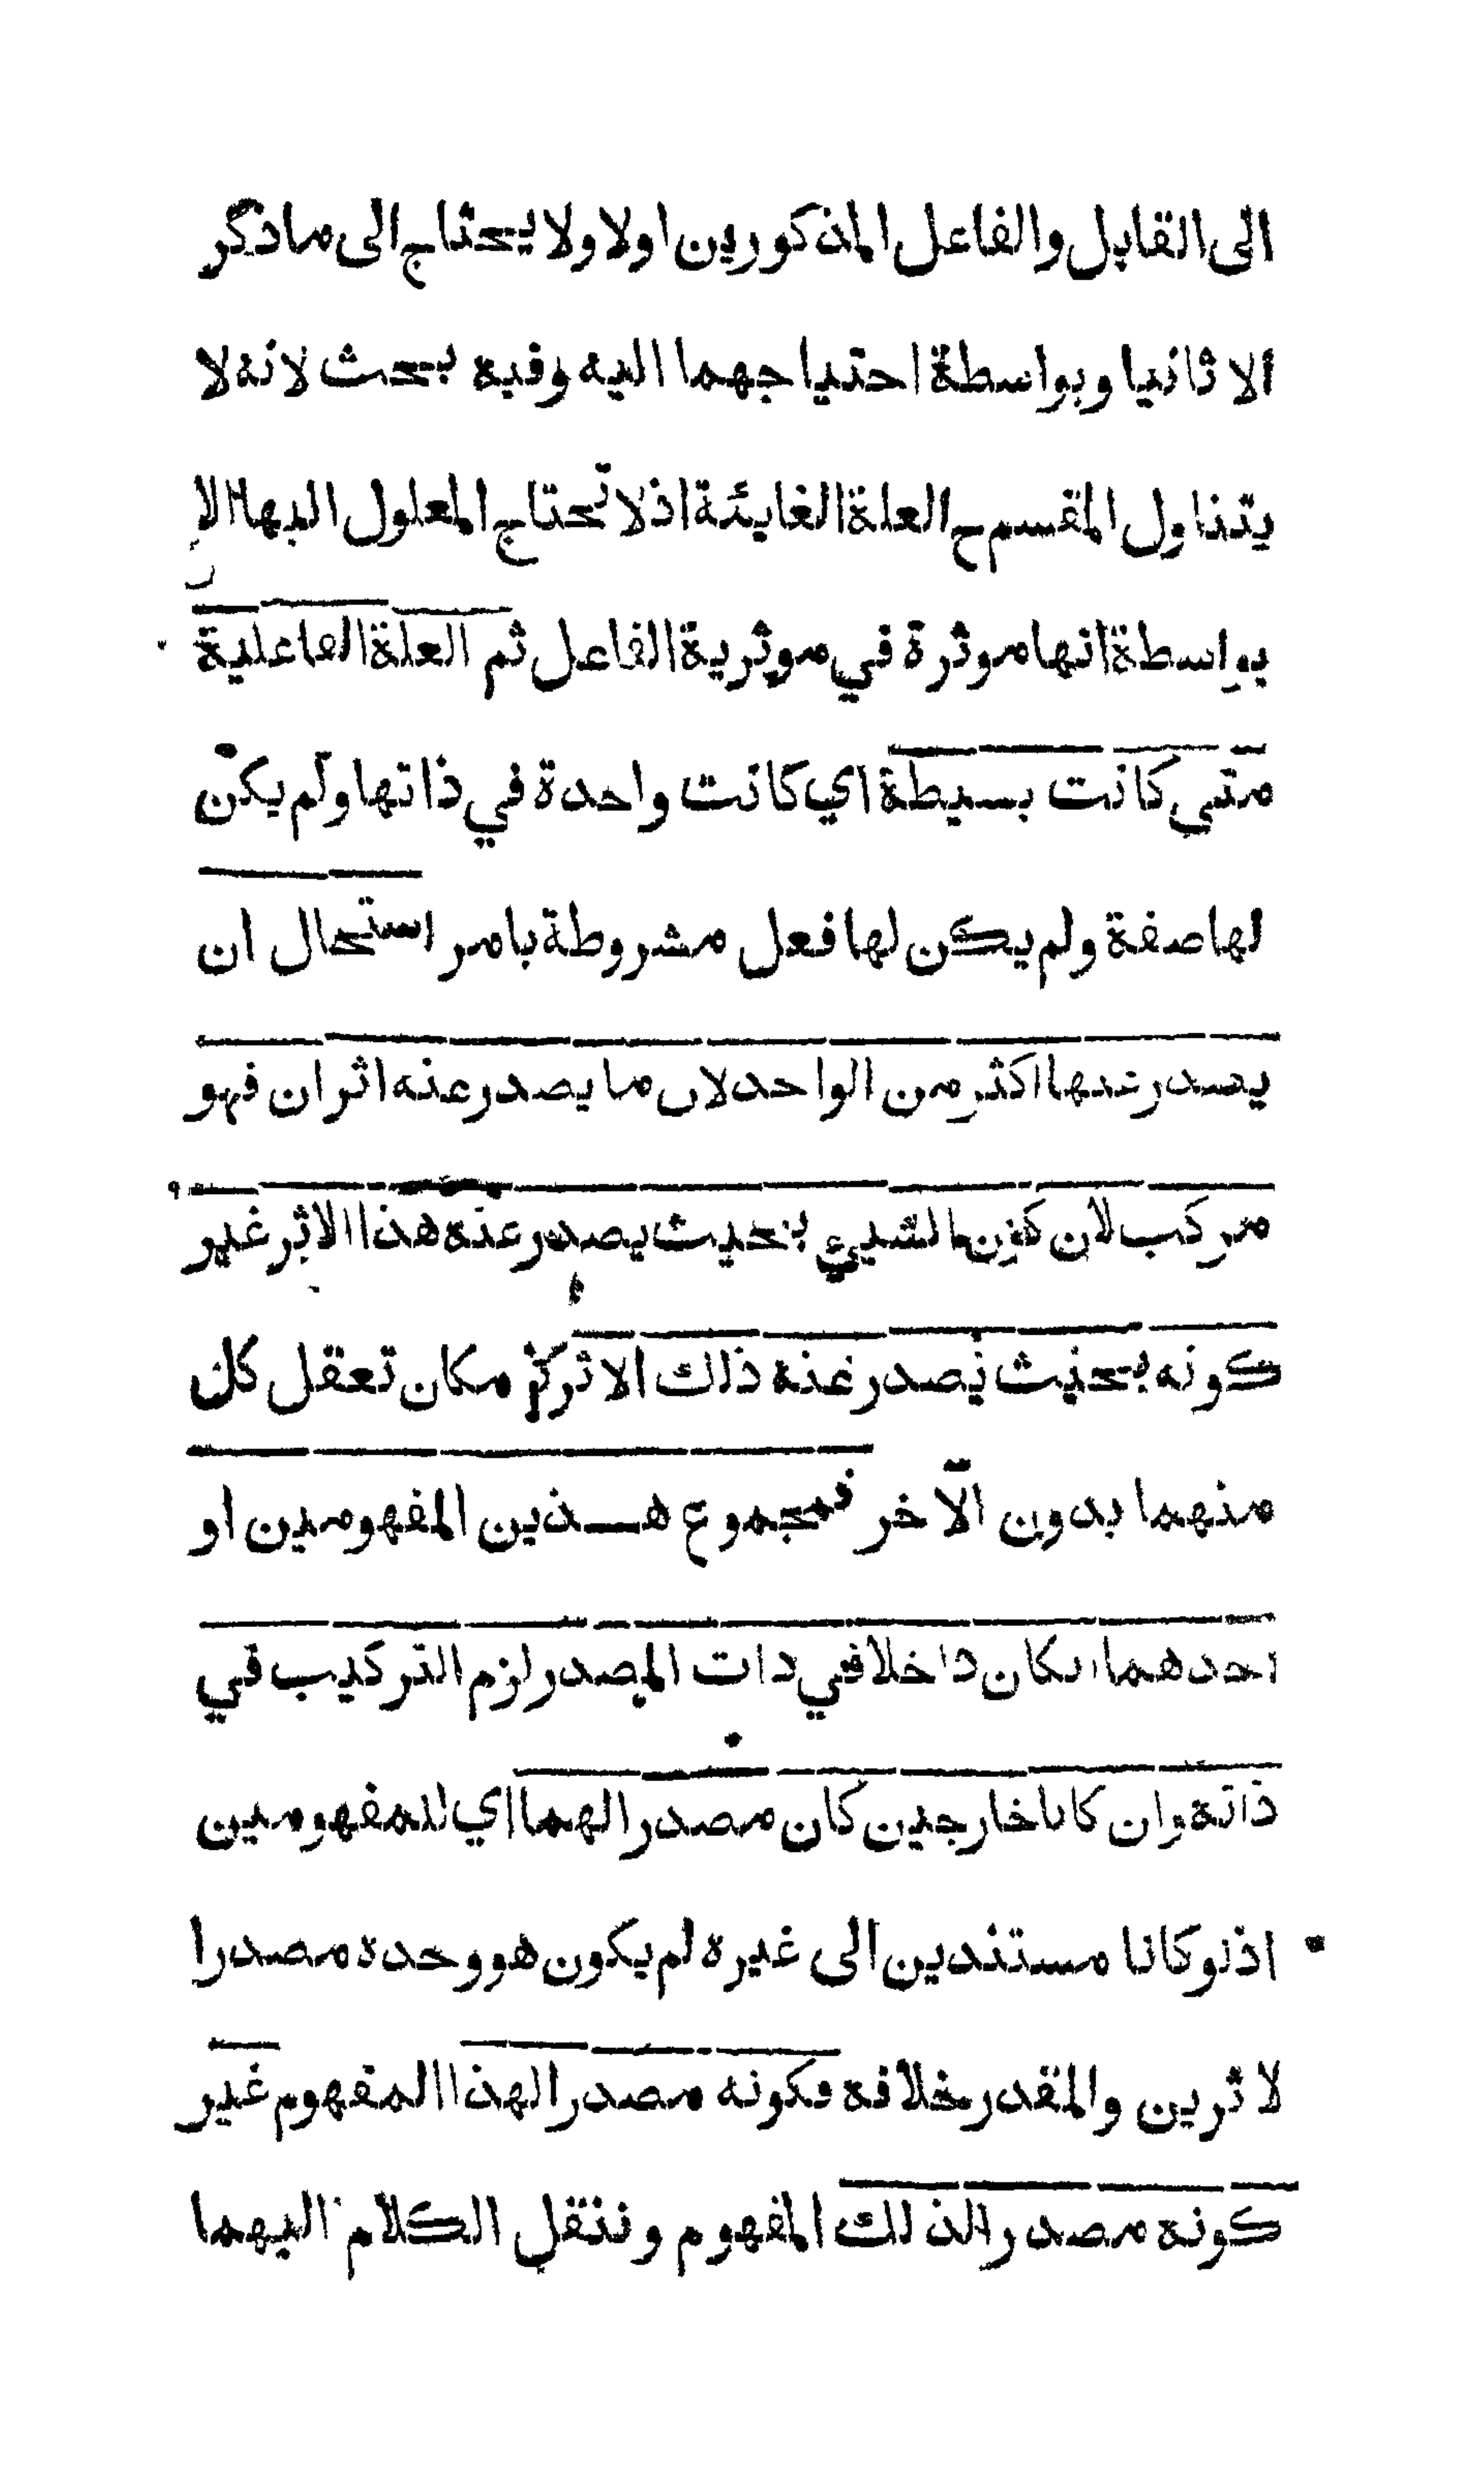 الى القابل والفاعل المذكورين اولا ولا يحتاج الى ما ذكر
الا ثانيا وبواسطة احتياجهما اليه وفيه بحث لانه لا
يتناول المقسم ح العلة الغايئة اذ لا تحتاج المعلول اليها الا
بواسطة انها موثرة في موثرية الفاعل ثم العلة الفاعلية
متى كانت بسيطة اي كانت واحدة في ذاتها ولم يكن
لها صفة ولم يكن لها فعل مشروطة بامر استحال ان
يصدر عنها اكثر من الواحد لان ما يصدر عنه اثران فهو
مركب لان كون الشيء بحيث يصدر عنه هذا الاثر غير
كونه بحيث يصدر عنه ذلك الاثر مكان تعقل كل
منهما بدون الآخر فمجموع هـذين المفهومين او
احدهما انكان داخلا في ذات المصدر لزم التركيب في
ذاته وان كانا خارجين كان مصدرا لهما اي للمفهومين
اذ لو كانا مستندين الى غيره لم يكون هو وحده مصدرا
لاثرين والمقدر خلافه فكونه مصدرا لهذا المفهوم غير
كونه مصدرا لذلك المفهوم وننقل الكلام اليهما